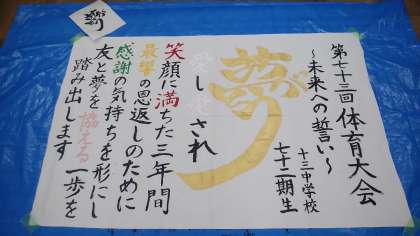 第七十三回体育大会
～未来への誓い～
十三中学校
七十二期生
夢
愛し愛され
笑顔に満ちた三年間
最響の恩返しのために
感謝の気持ちを形にし
友と夢を協える一歩を
踏み出します